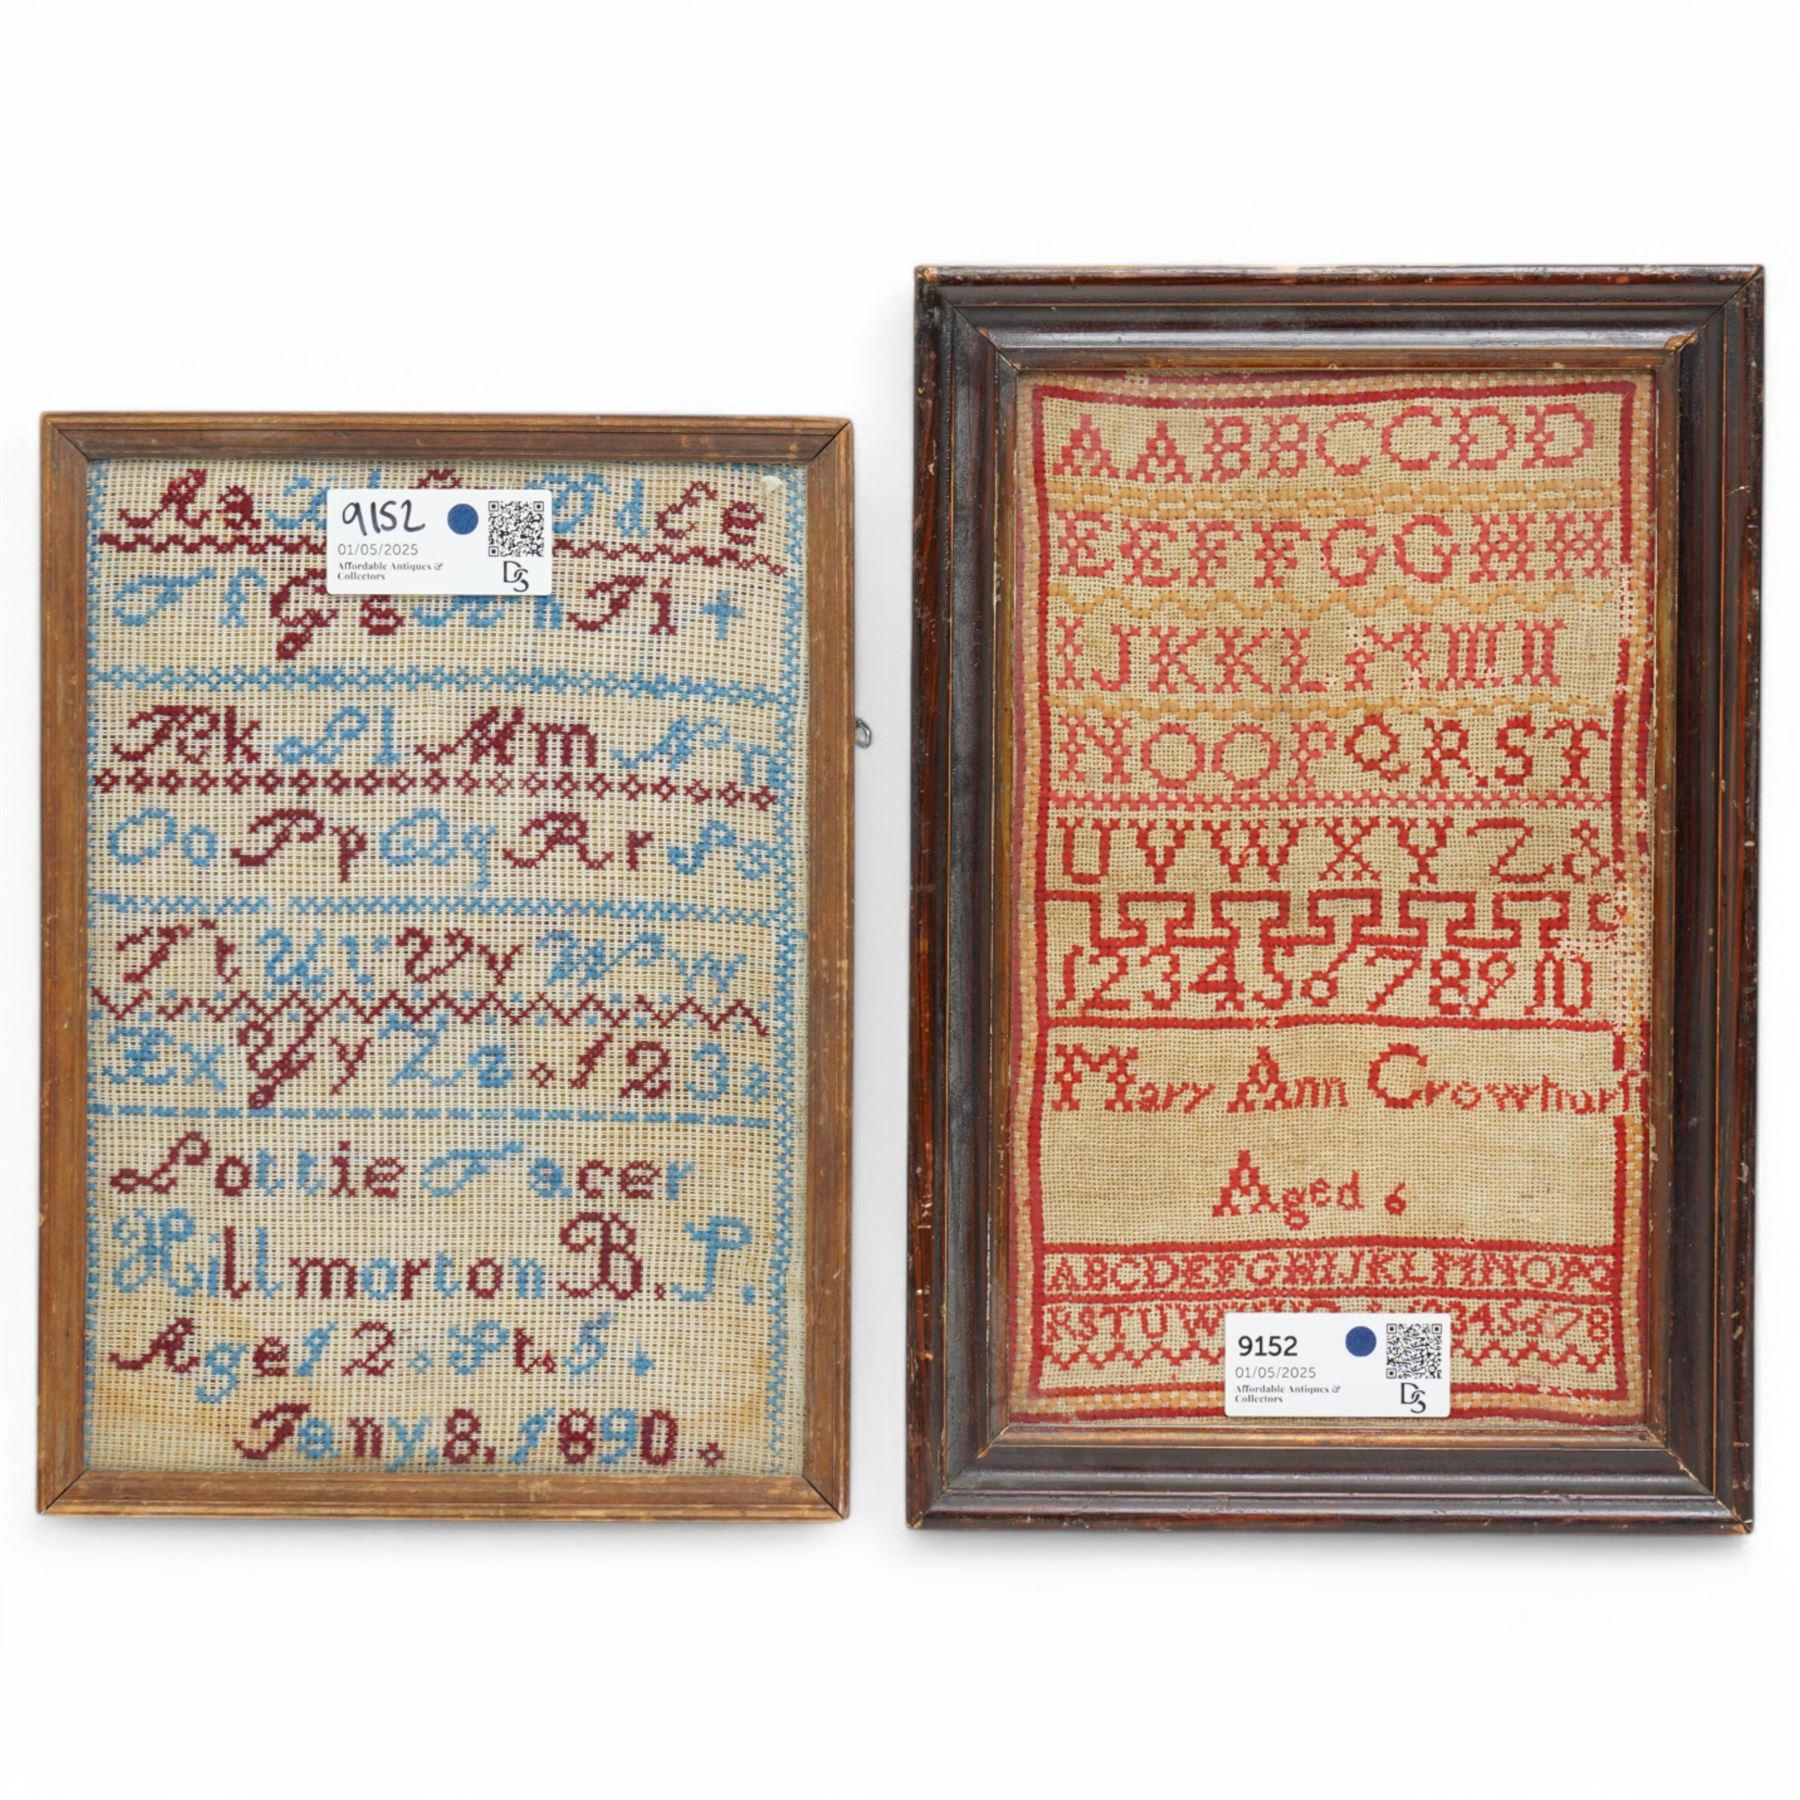 Aa d Ee
9152
01/05/2025
Affordable Antiques &
Collectors
DS
F f G g h I i +
K k L l M m N n
O o P p Q q R r S s
T t U u V v W w
X x Y y Z z . 1 2 3
Lottie Facer
Hillmorton B. S.
Age 12. St. 5.
Jany. 8. 1890.
AABBCCDD
EEFFGGHH
IJKKL
NOOPQRST
UVWXYZ&
12345678910
Mary Ann Crowhurst
Aged 6
ABCDEFGHIJKLMNOPQ
RSTUW 345678
9152
01/05/2025
Affordable Antiques &
Collectors
DS